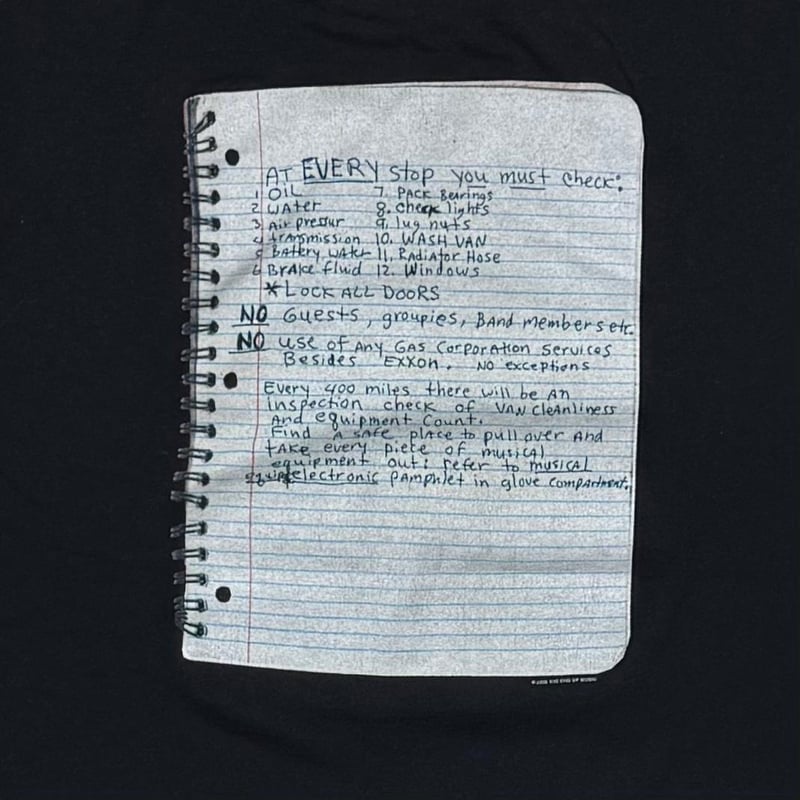 AT EVERY stop you must check:
1 OIL 7. PACK BEARINGS
2 WATER 8. check lights
3 Air pressur 9. lug nuts
4 transmission 10. WASH VAN
5 BATTERY WATER 11. RADIATOR HOSE
6 BRAKE fluid 12. Windows
* LOCK ALL DOORS
NO Guests, groupies, BAND members etc.
NO use of ANY GAS CORPORATION Services
Besides EXXON. NO exceptions
Every 400 miles there will be AN
inspection check of VAN cleanliness
AND equipment Count.
Find a safe place to pull over AND
tAKE every piece of musicAl
equipment out: refer to musicAL
electronic PAMphlet in glove compArtment.